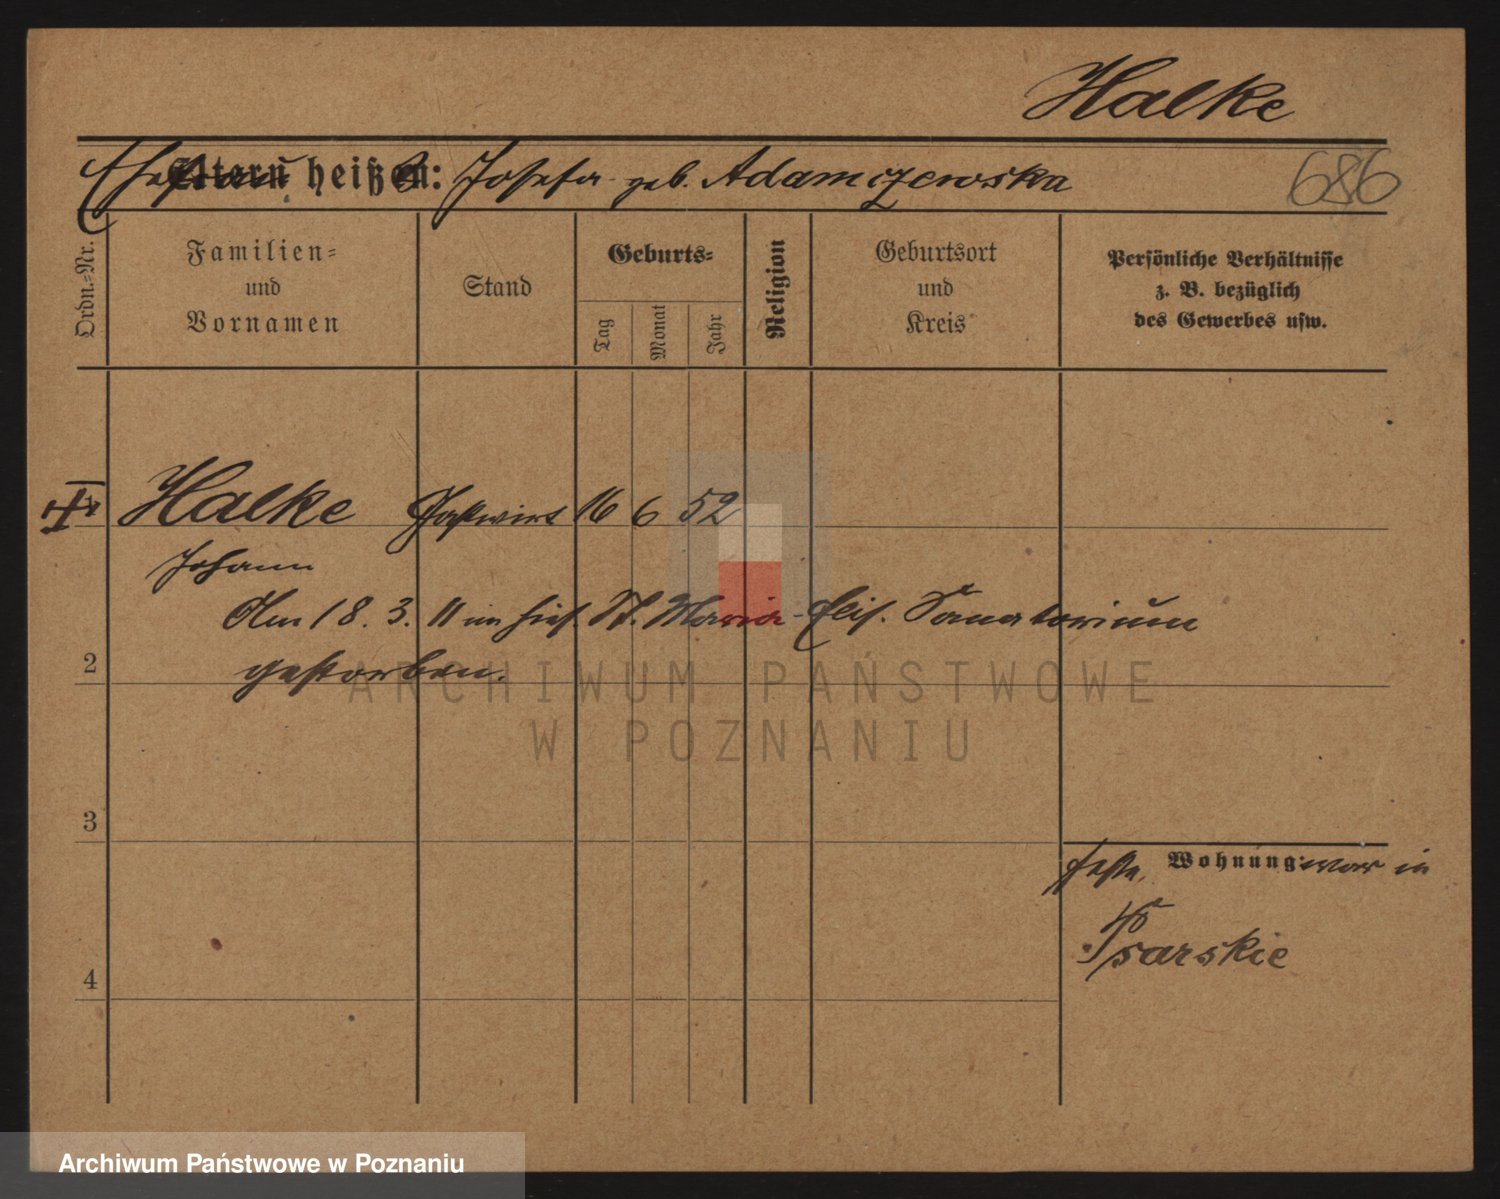 Halke
Ehefrau heißt: Josefa geb. Adamczewska
686
Ordn.-Nr.
Familien-
und
Vornamen
Stand
Geburts-
Tag
Monat
Jahr
Religion
Geburtsort
und
Kreis
Persönliche Verhältnisse
z. B. bezüglich
des Gewerbes usw.
Halke Gastwirt 16 6 52
Johann
Am 18. 3. 11 im hies. St. Maria-Elis. Sanatorium
2 gestorben.
3
feste Wohnung war in
Psarskie
4
ARCHIWUM PAŃSTWOWE
W POZNANIU
Archiwum Państwowe w Poznaniu